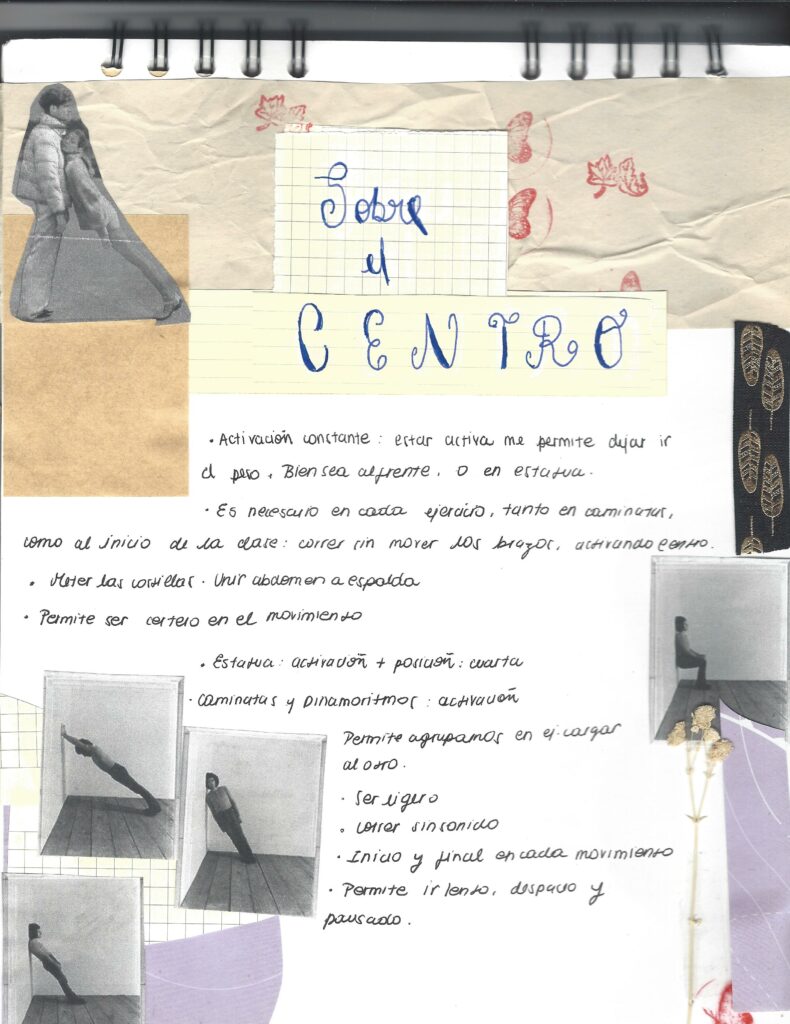 Sobre
el
CENTRO
• Activación constante: estar activa me permite dejar ir
el peso. Bien sea al frente, o en estatua.
• Es necesario en cada ejercicio, tanto en caminatas,
como al inicio de la clase: correr sin mover los brazos, activando centro.
• Meter las costillas. Unir abdomen a espalda
• Permite ser certero en el movimiento
• Estatua: activación + posición: cuarta
• caminatas y Dinamoritmos: activación
Permite agruparnos en ej: cargar
al otro.
• Ser ligero
• correr sin sonido
• Inicio y final en cada movimiento
• Permite ir lento, despacio y
pausado.